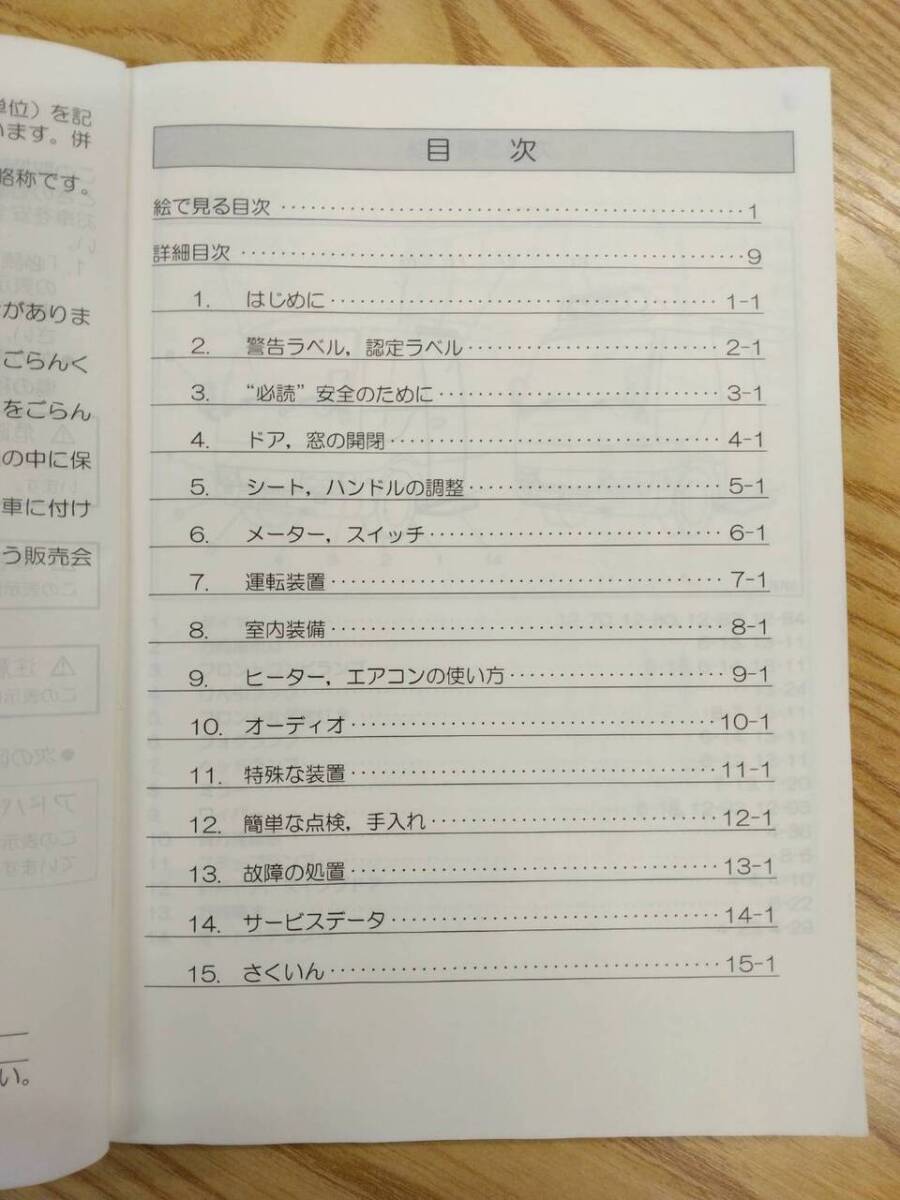 単位）を記
います。併
略称です。
がありま
ごらんく
をごらん
の中に保
車に付け
う販売会
い。
目 次
絵で見る目次 1
詳細目次 9
1. はじめに 1-1
2. 警告ラベル，認定ラベル 2-1
3. “必読” 安全のために 3-1
4. ドア，窓の開閉 4-1
5. シート，ハンドルの調整 5-1
6. メーター，スイッチ 6-1
7. 運転装置 7-1
8. 室内装備 8-1
9. ヒーター，エアコンの使い方 9-1
10. オーディオ 10-1
11. 特殊な装置 11-1
12. 簡単な点検，手入れ 12-1
13. 故障の処置 13-1
14. サービスデータ 14-1
15. さくいん 15-1